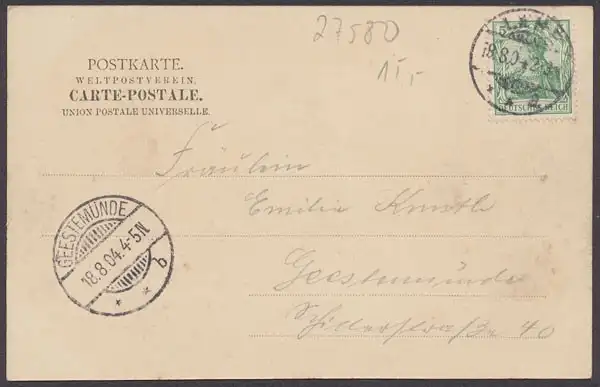 27580
15,-
POSTKARTE.
WELTPOSTVEREIN.
CARTE-POSTALE.
UNION POSTALE UNIVERSELLE.
18.8.04
DEUTSCHES REICH
Fräulein
Emilie
Geestemünde
Schillerstraße 40
GEESTEMÜNDE
18.8.04. 4-5N
* *